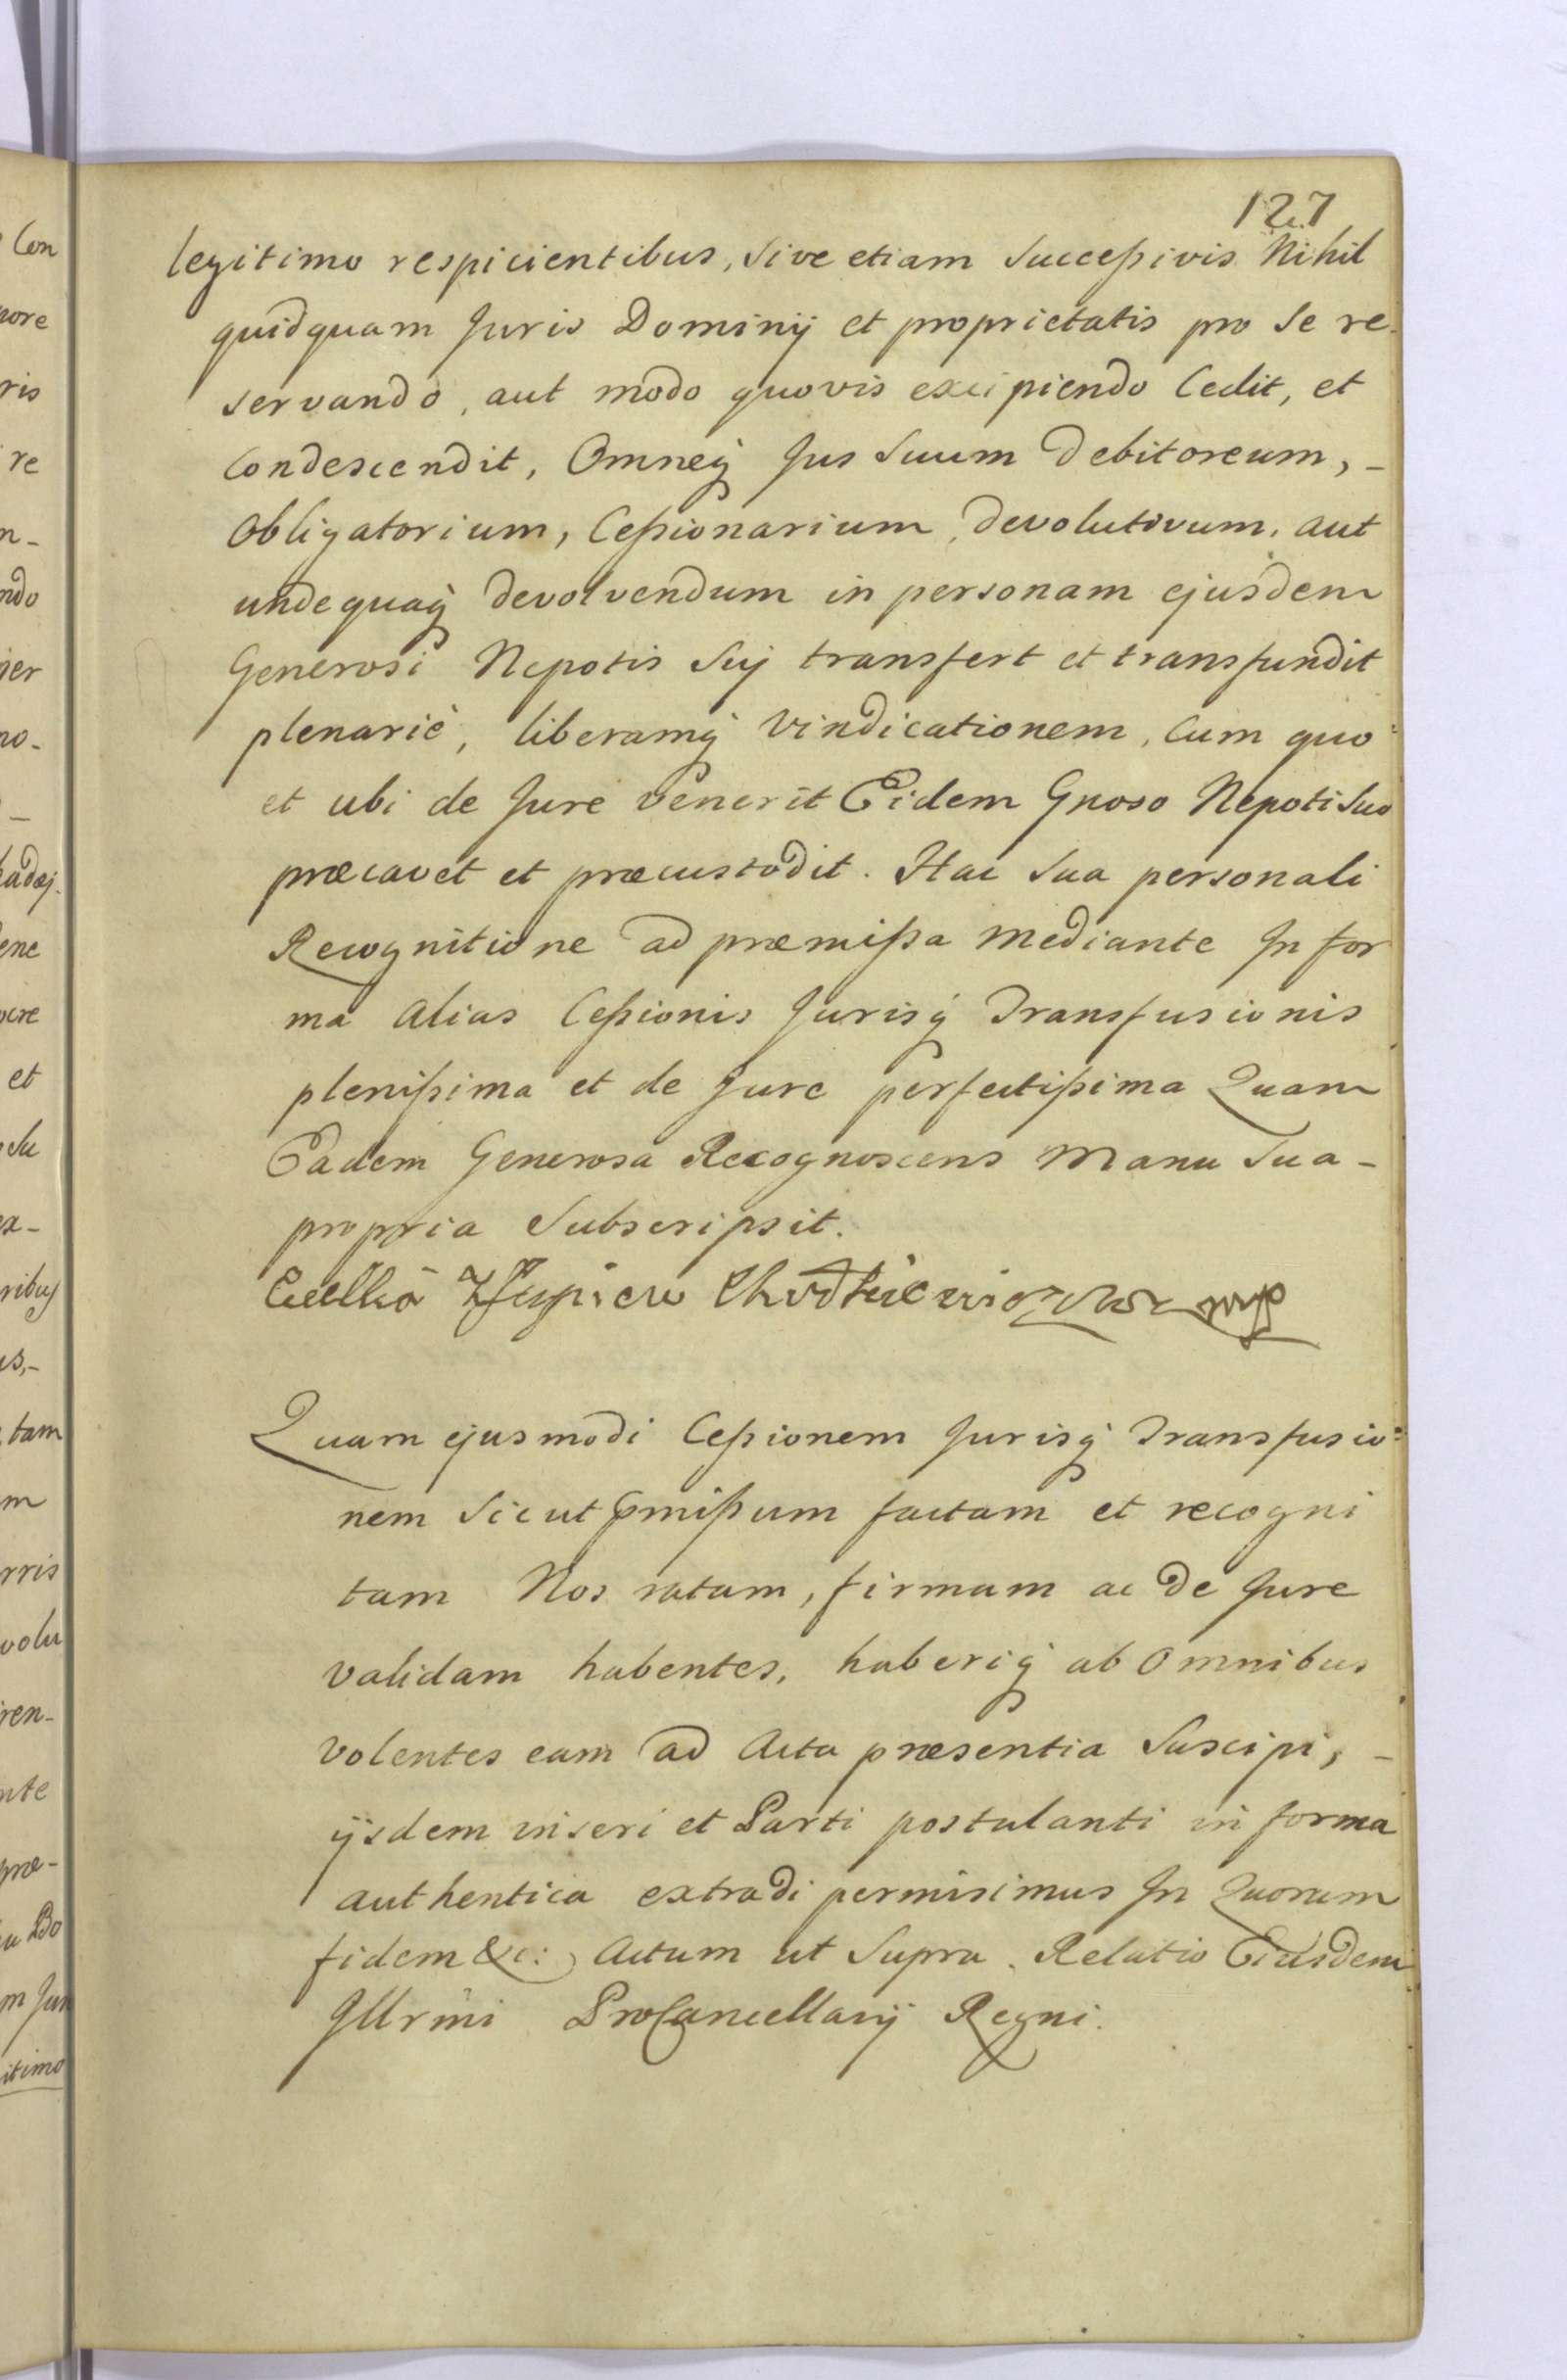 127
legitimo respicientibus, Sive etiam Succeßivis Nihil
quidquam Juris Dominij et proprietatis pro Se re-
servando, aut modo quovis excipiendo Cedit, et
Condescendit, Omneq́ Jus Suum Debitoreum, -
Obligatorium, Ceßionarium, devolutivum, aut
undequaq́ devolvendum in personam ejusdem
Generosi Nepotis Sui transfert et transfundit
plenariè, liberamq́ Vindicationem, Cum quo
et ubi de Jure venerit Eidem Gnoso Nepoti Suo
præcavet et præcustodit. Hac Sua personali
Recognitione ad præmißa mediante Jn for
ma alias Ceßionis Jurisq́ Transfusionis
plenißima et de Jure perfectißima Quam
Eadem Generosa Recognoscens Manu Sua -
propria Subscripsit.
mp
Quam ejusmodi Ceßionem Jurisq́ Transfusio:
nem Sicut pmißum factam et recogni
tam Nos ratam, firmam ac de Jure
validam habentes, haberiq́ ab Omnibus
volentes eam ad Acta præsentia Suscipi, -
ijsdem inseri et Parti postulanti in forma
authentica extradi permisimus Jn Quorum
fidem &c: Actum ut Supra. Relatio Eiusdem
Jllrmi ProCancellarij Regni.
Con
nore
ris
re
n-
ndo
no-
ene
et
Su
ex-
ribus
us,-
tam
m
rris
volu
ren-
nte
præ-
itimo